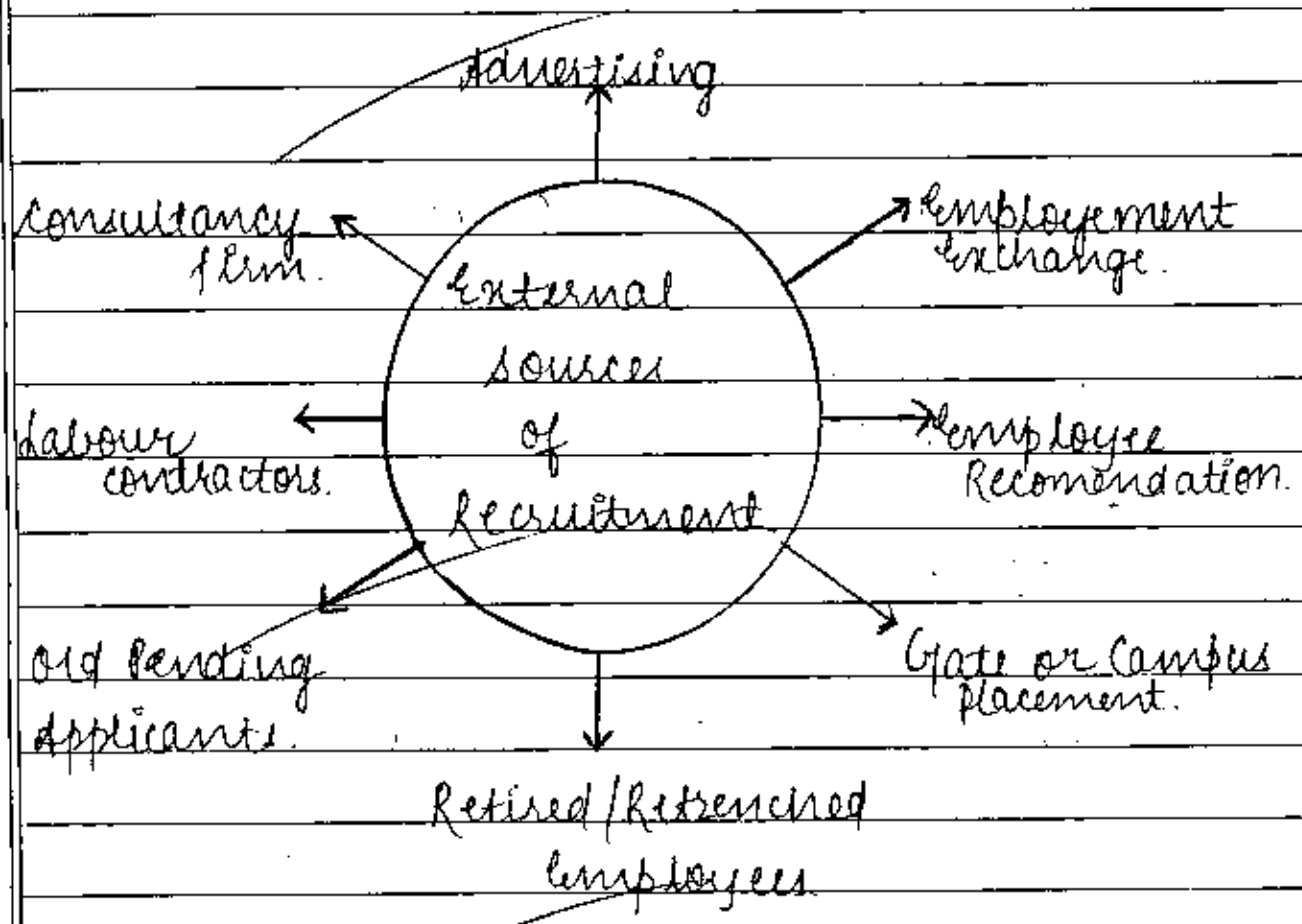 Advertising
Consultancy
firm.
Employement
Exchange.
External
sources
of
Recruitment
Labour
contractors.
Employee
Recomendation.
Old Pending
Applicants.
Gate or Campus
Placement.
Retired/Retrenched
Employees